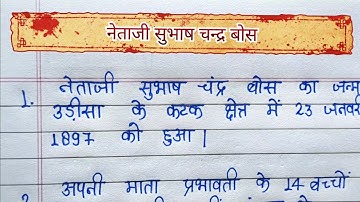 नेताजी सुभाष चन्द्र बोस
1. नेताजी सुभाष चंद्र बोस का जन्म
उड़ीसा के कटक क्षेत्र में 23 जनवर
1897 को हुआ।
अपनी माता प्रभावती के 14 बच्चों